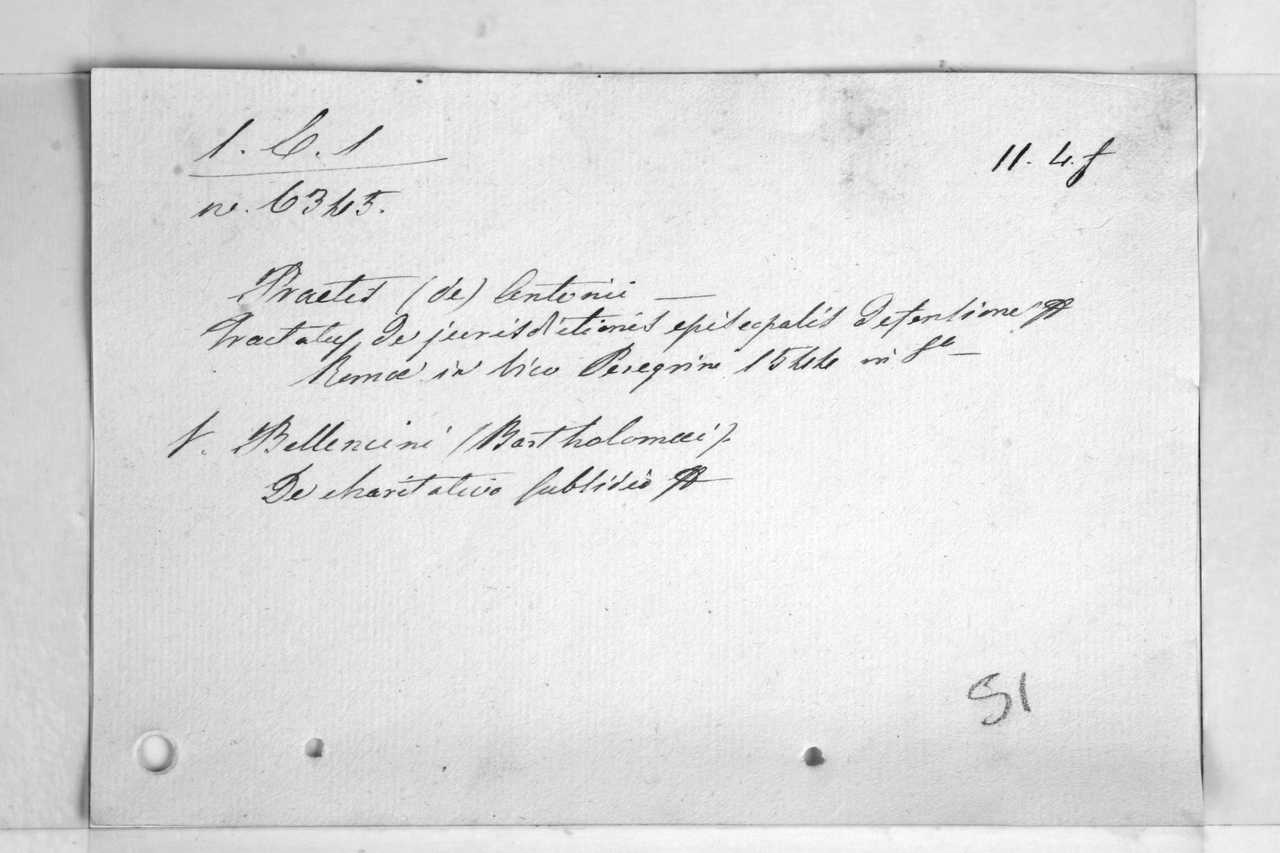 1. C. 1
11. 4. f
n. 6345.
Praetis (de) Antonii —
Tractatus de jurisdictionis episcopalis defensione
Romae in Vico Peregrini 1544 in f° —
V. Bellencini (Bartholomaei).
De charitativo subsidio
51